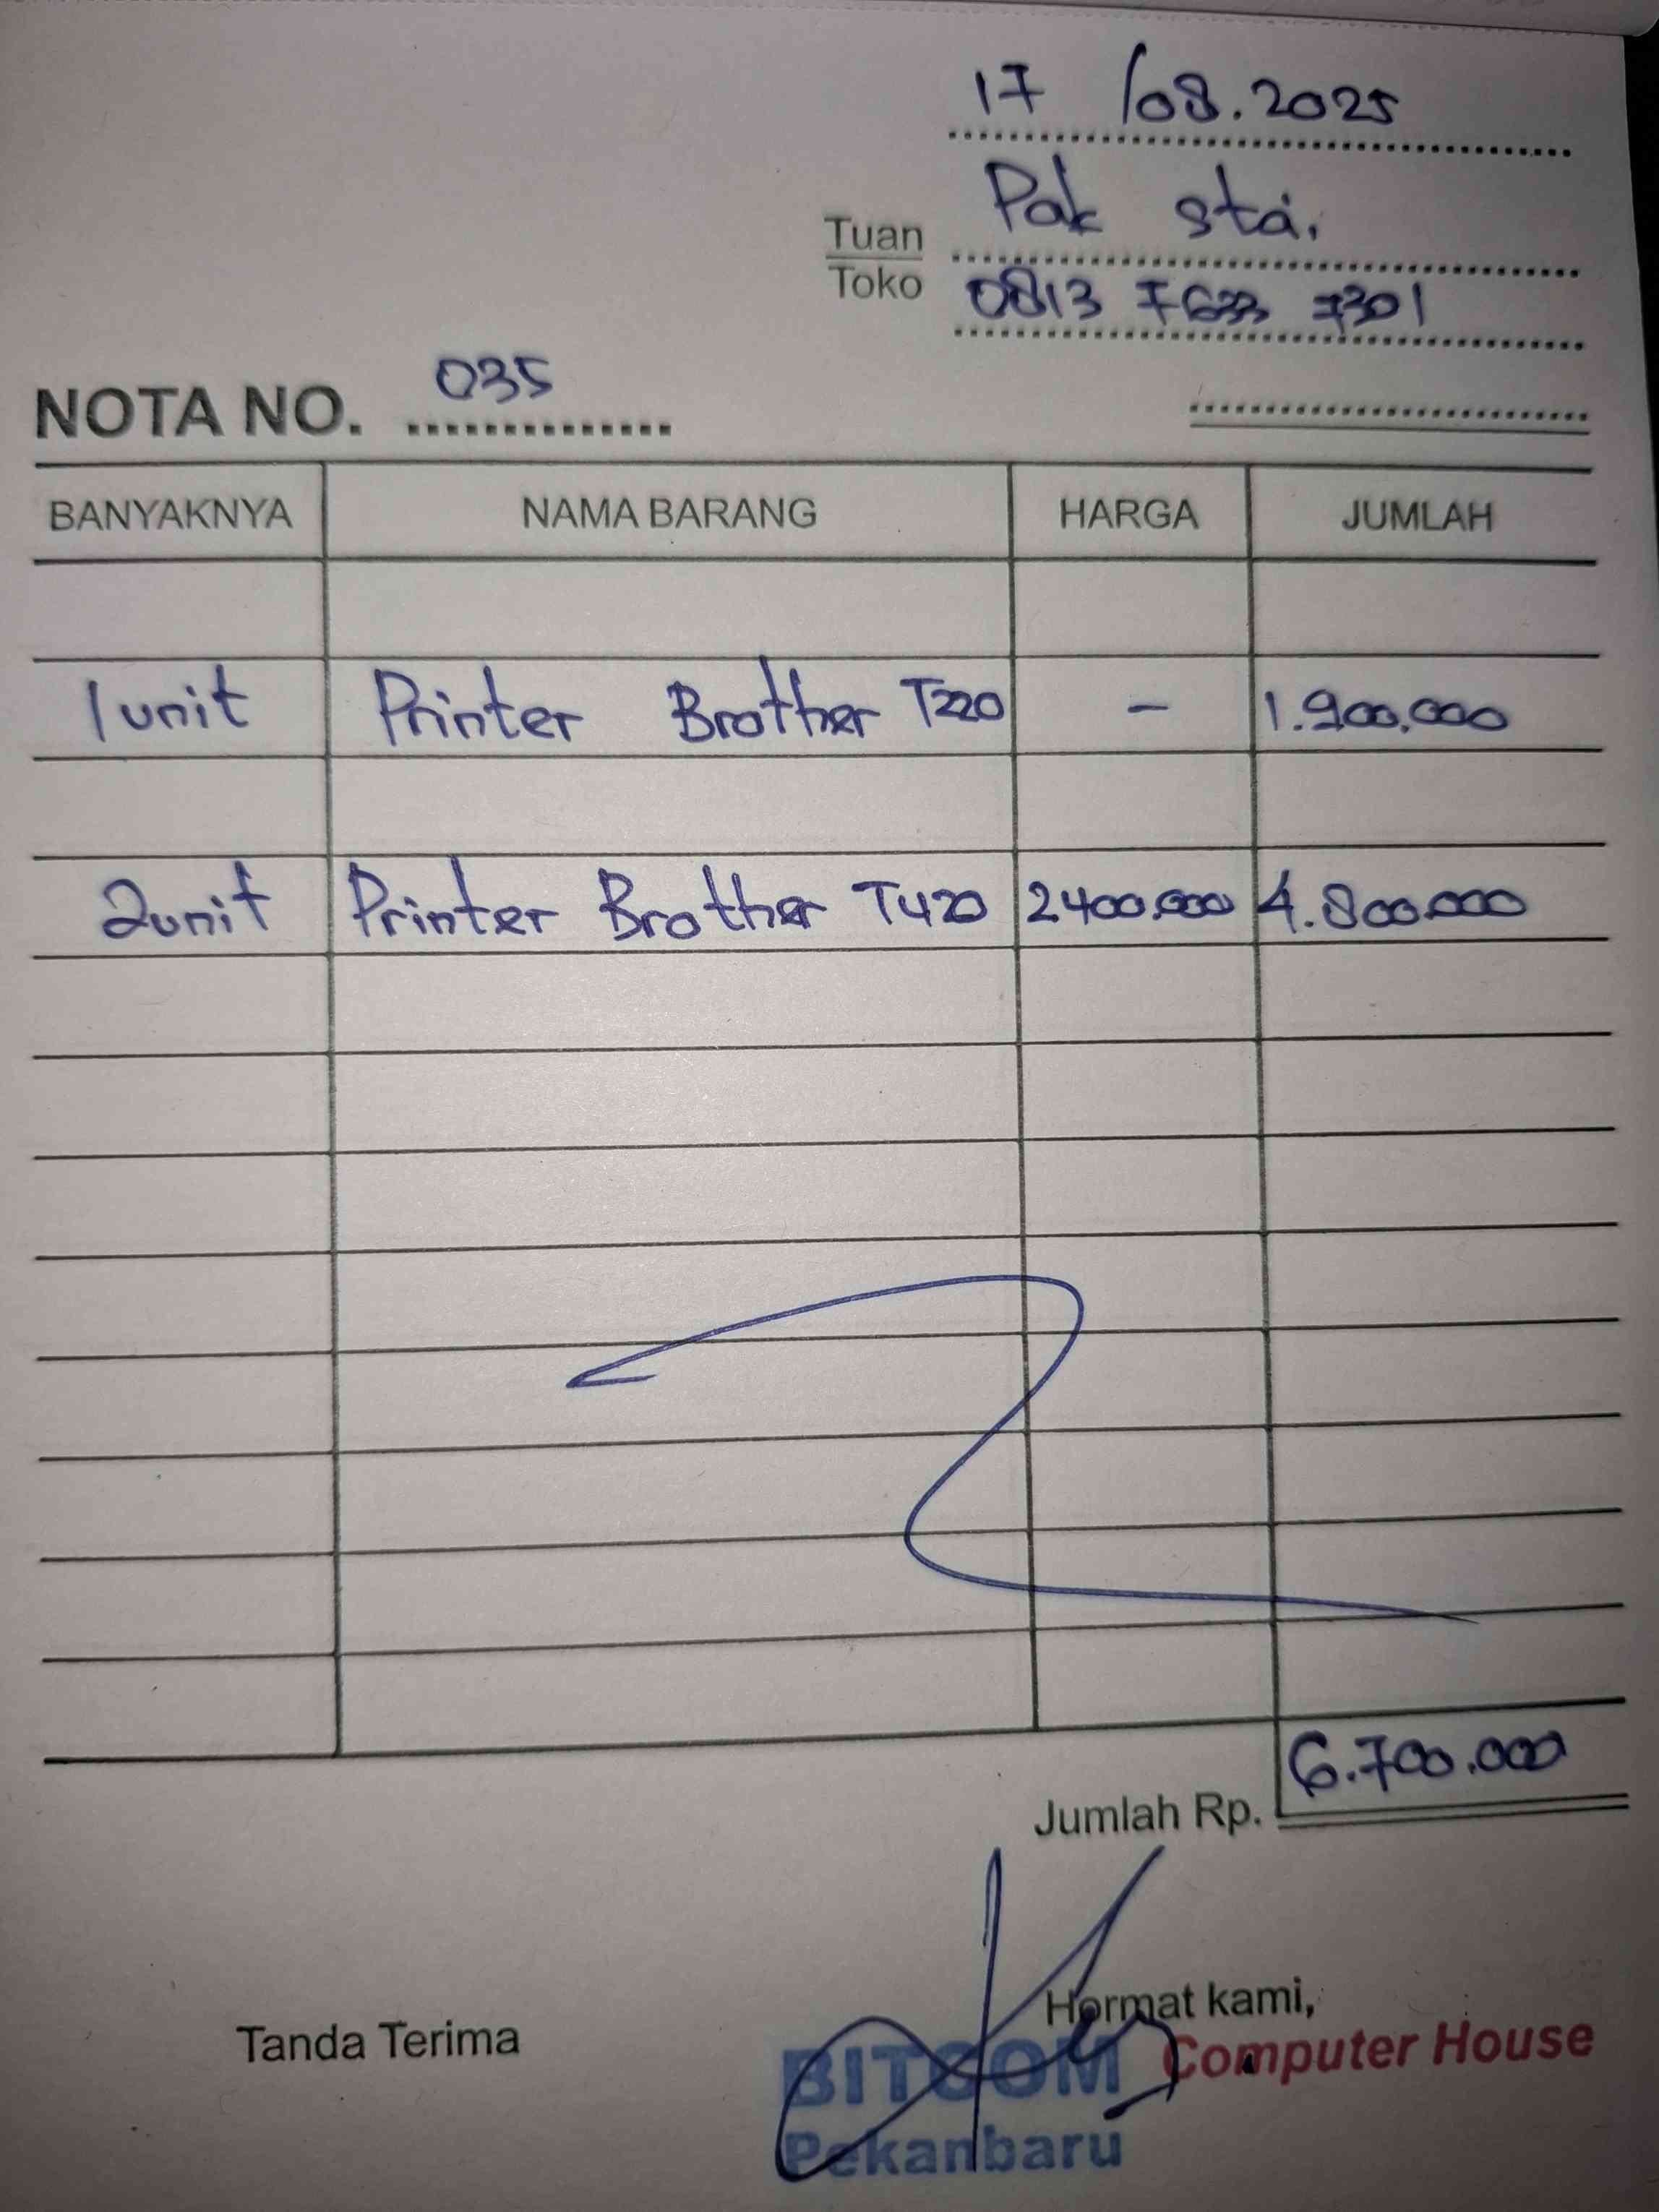 17 /08.2025
Tuan Pak sta.
Toko 0813 7633 7301
NOTA NO. 035
BANYAKNYA NAMA BARANG HARGA JUMLAH
1 unit Printer Brother T220 - 1.900.000
2unit Printer Brother T420 2400.000 4.800.000
Jumlah Rp. 6.700.000
Tanda Terima Hormat kami,
BITCOM Computer House
Pekanbaru